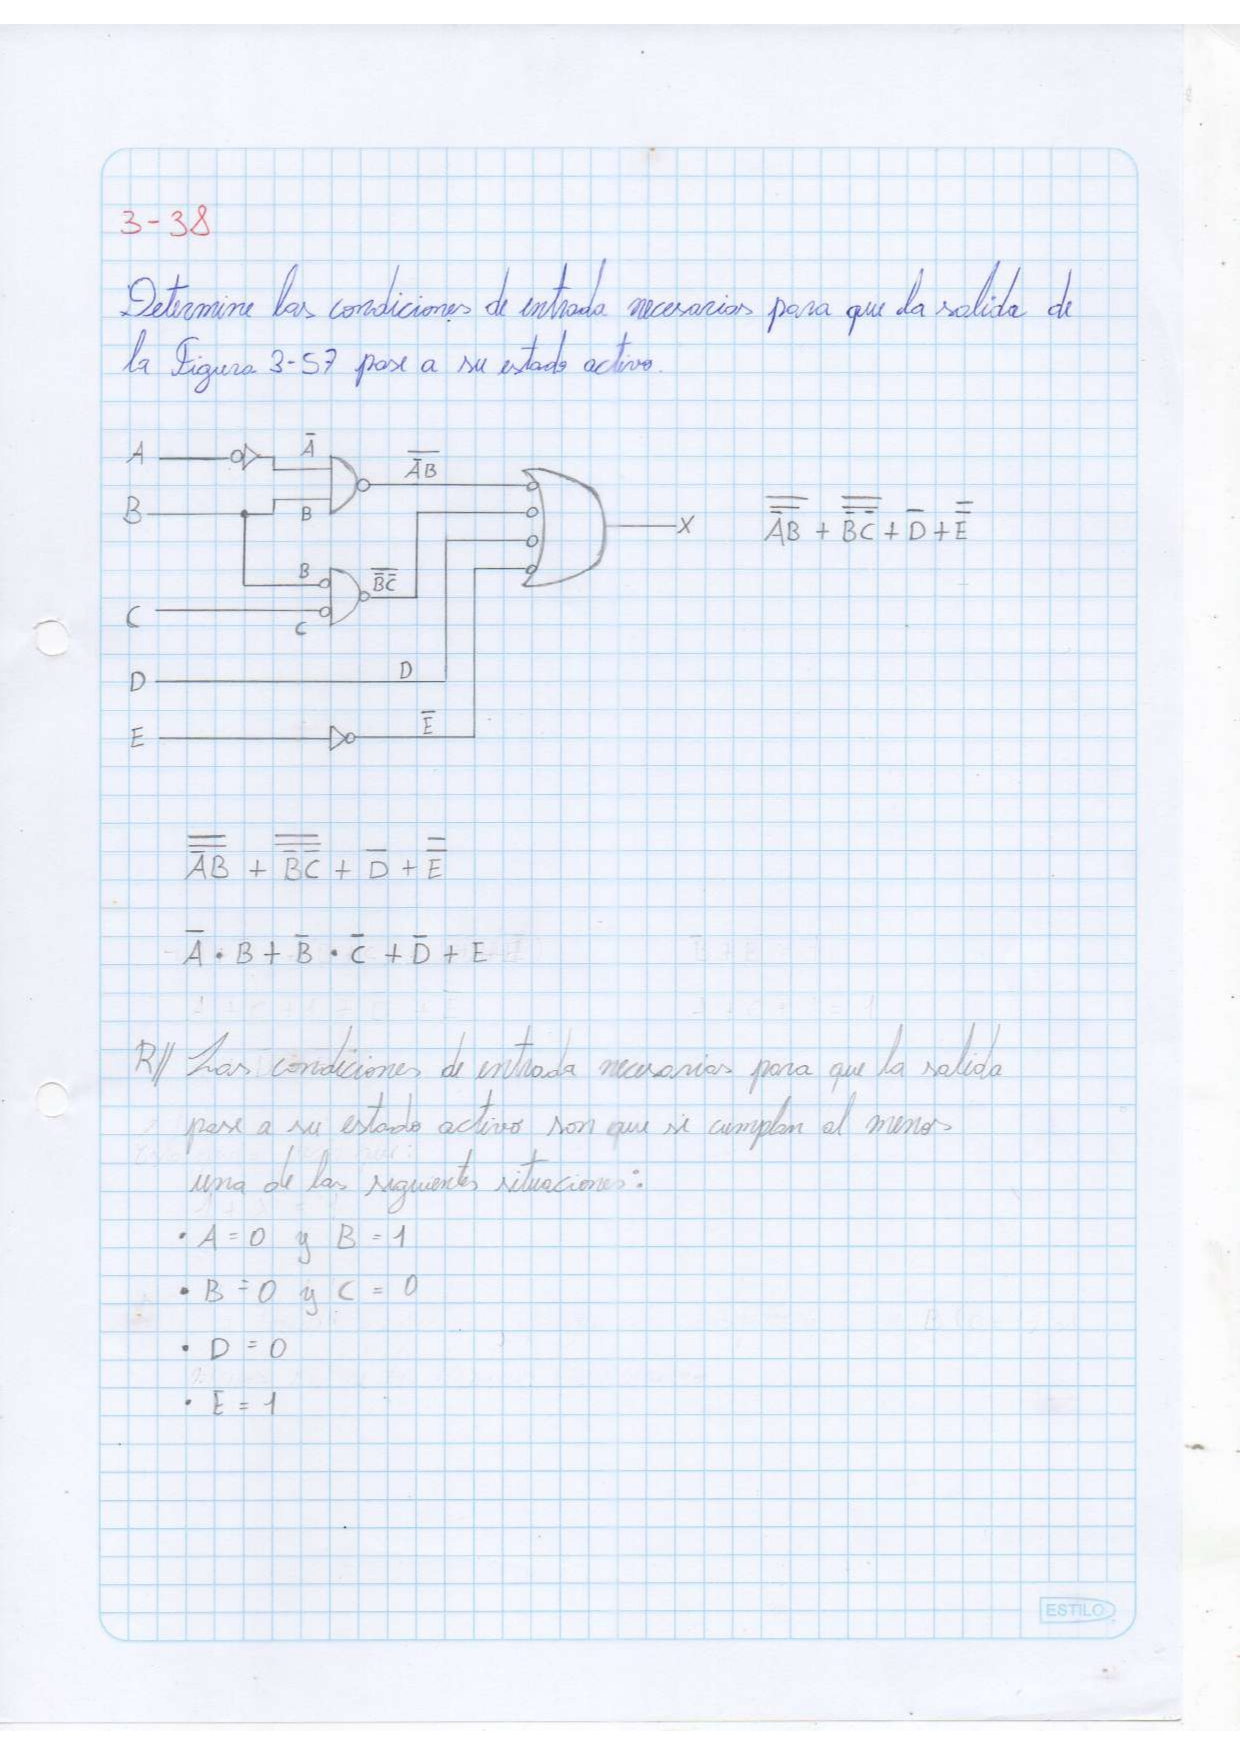 3-38
Determine las condiciones de entrada necesarias para que la salida de
la Figura 3-57 pase a su estado activo.
A
B
C
D
E
A̅
B
A̅B̅
B
C
B̅C̅
D
E̅
X
A̿B̿ + B̿C̿ + D̅ + E̿
A̿B̿ + B̿C̿ + D̅ + E̿
A̅ • B + B̅ • C̅ + D̅ + E
R// Las condiciones de entrada necesarias para que la salida
pase a su estado activo son que se cumplan al menos
una de las siguientes situaciones:
• A = 0 y B = 1
• B = 0 y C = 0
• D = 0
• E = 1
ESTILO